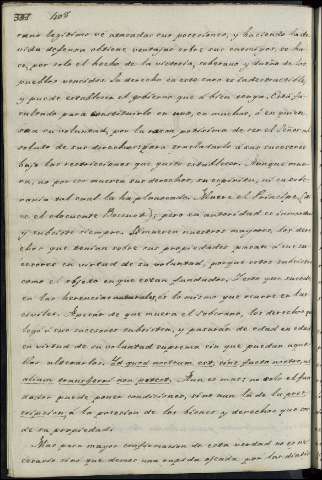 408
rano legitimo ve atacadas sus posecciones, y haciendo la de-
vida defensa obtiene ventajas sobre sus enemigos, se ha-
ce, por solo el hecho de la victoria, soberano y dueño de los
pueblos vencidos. Su derecho en este caso es indestructible,
y puede establecer el gobierno que á bien tenga. Está fa-
cultado para constituirlo en uno, en muchos, ó en quien
sea su voluntad, por la razon poderosima de ser el Señor ab-
soluto de sus derechos para trasladarlo á sus sucesores
bajo las restricciones que quiera establecer. Aunque mue-
ra, no por eso mueren sus derechos, su espiritu, ni su sobe-
rania tal cual la ha planteado. Muere el Principe, (di-
ce el elocuente Bossuet); pero su autoridad es inmortal
y subsiste siempre. Si mueren nuestros mayores, los dere-
chos que tenian sobre sus propiedades pasan á sus su-
cesores en virtud de su voluntad, porque estos subsisten
como el objeto en que estan fundados. Y esto que sucede
en las herencias naturales, es lo mismo que ocurre en las
civiles. Apesar de que muera el Soberano, los derechos que
legó á sus sucesores subsisten, y pasarán de edad en edad
en virtud de su voluntad suprema sin que puedan aque-
llos alterarlos. Id quod nostrum est, sine facto nostro, ad
alium transferri non potest. Aun es mas: no solo el fun-
dador puede poner condiciones, sino aun la de la pres-
cripcion, á la posecion de los bienes y derechos que son
de su propiedad.
Mas para mayor confirmacion de esta verdad no es ne-
cesario sino que demos una rapida ojeada por las distin-